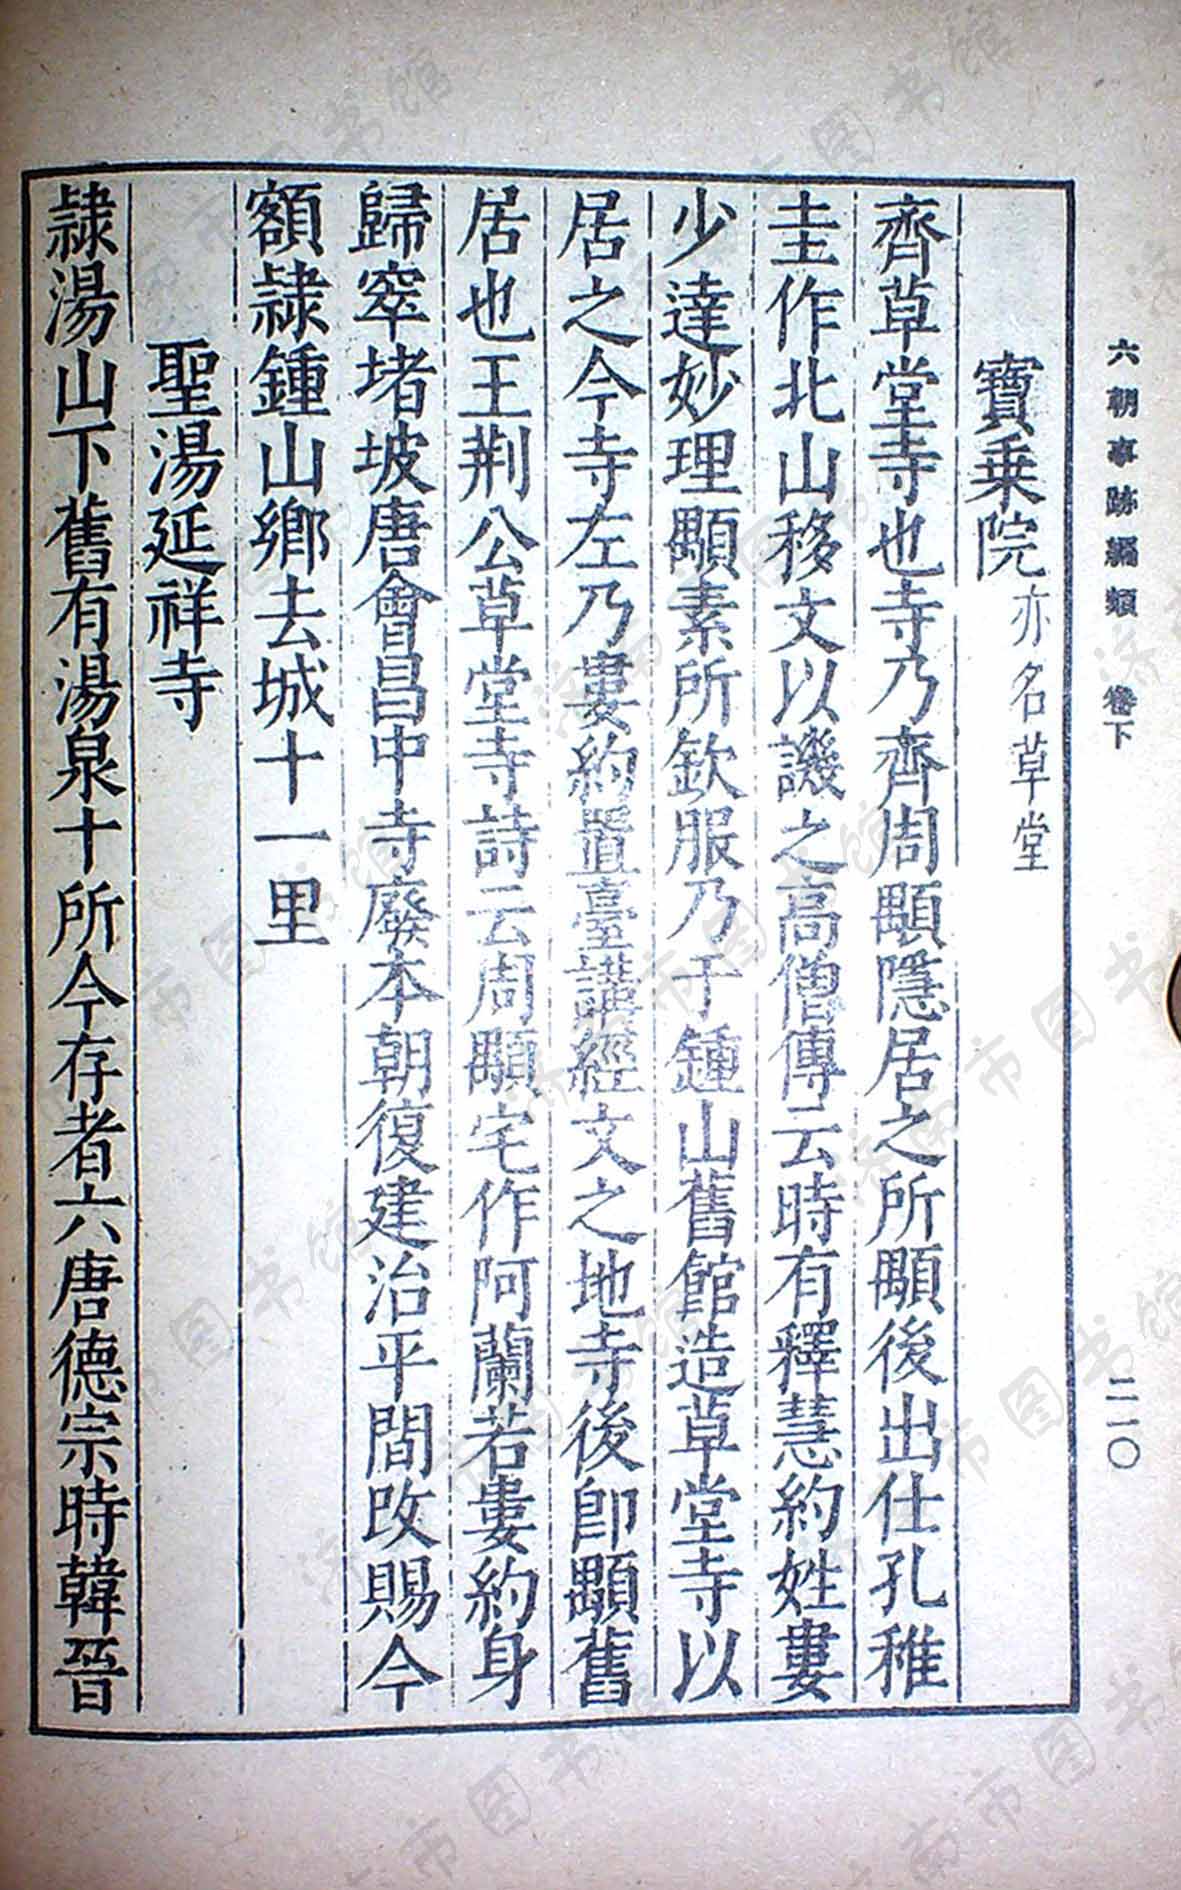 六朝事跡編類 卷下 二一〇
寶乗院亦名草堂
齊草堂寺也寺乃齊周顒隱居之所顒後出仕孔稚
圭作北山移文以譏之高僧傳云時有釋慧約姓婁
少達妙理顒素所欽服乃于鍾山舊館造草堂寺以
居之今寺左乃婁約置臺講經文之地寺後卽顒舊
居也王荆公草堂寺詩云周顒宅作阿蘭若婁約身
歸窣堵坡唐會昌中寺廢本朝復建治平間改賜今
額隷鍾山鄉去城十一里
聖湯延祥寺
隷湯山下舊有湯泉十所今存者六唐德宗時韓晉